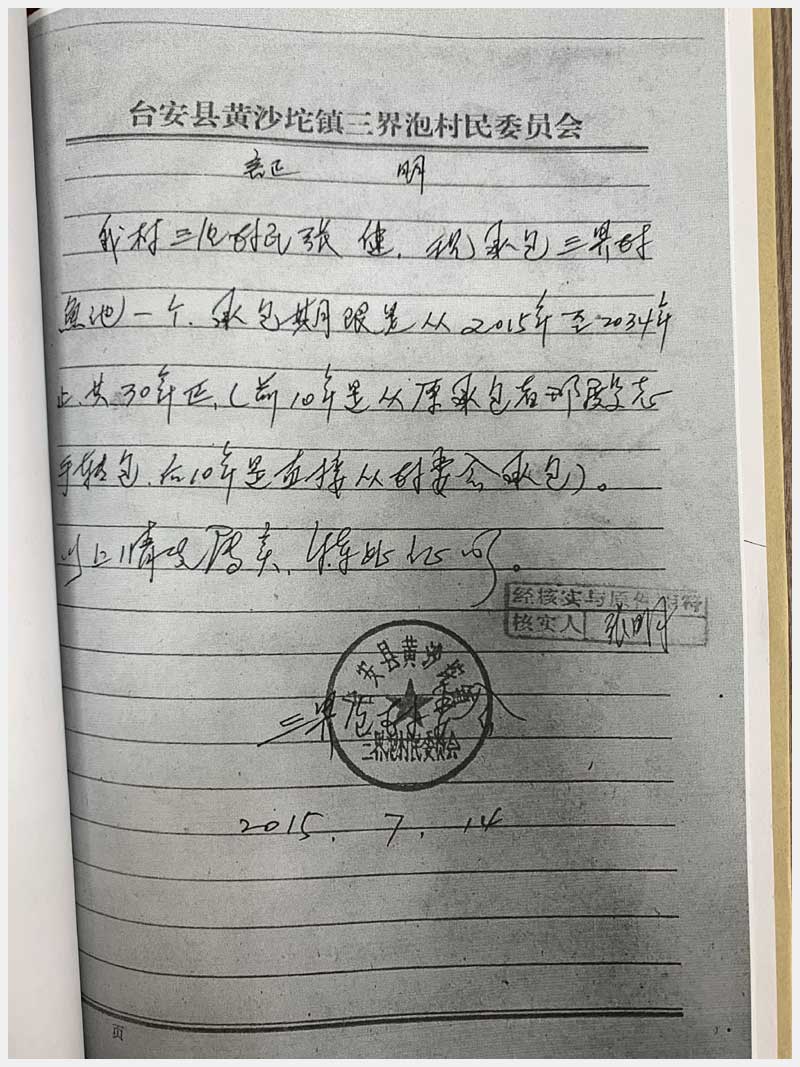 台安县黄沙坨镇三界泡村民委员会
证 明
我村三组村民张健，现承包三界村
鱼池一个，承包期限是从2015年至2034年
止，共30年正，（前10年是从原承包者邓
手转包，后10年是直接从村委会承包）。
以上情况属实，特此证明。
经核实与原件相符
核实人 张明
台安县黄沙坨镇
三界泡村民委员会
三界泡村委会
2015. 7. 14
页